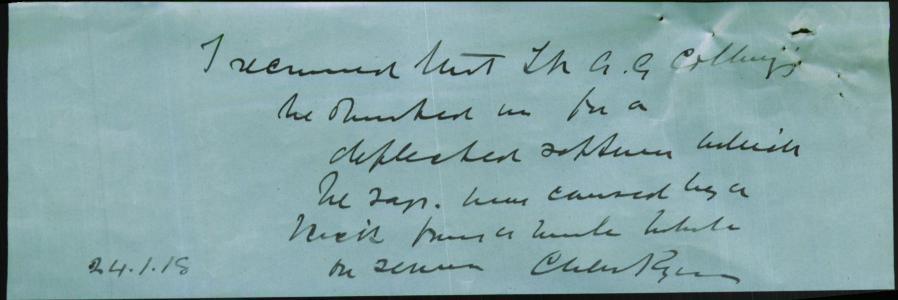 I recommend that Lt A. G. Collings
be boarded for a
deflected septum which
he says. was caused by a
kick from a mule while
on service
24.1.18